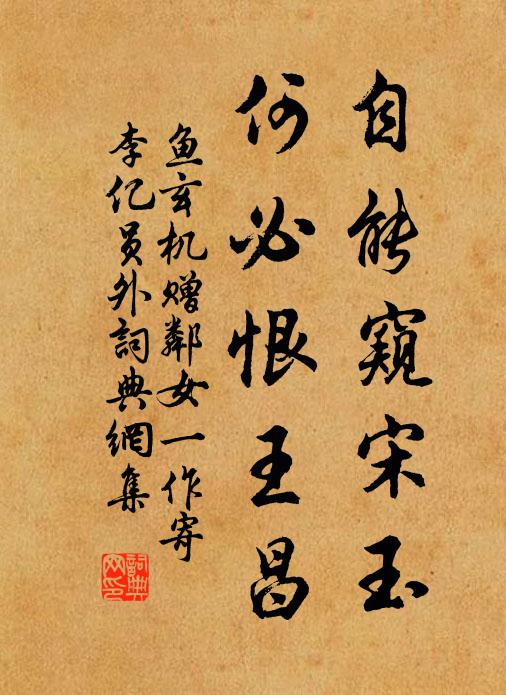 自能窥宋玉
何必恨王昌
鱼玄机赠鄰女一作寄
李亿员外詞典網集
詞典网印